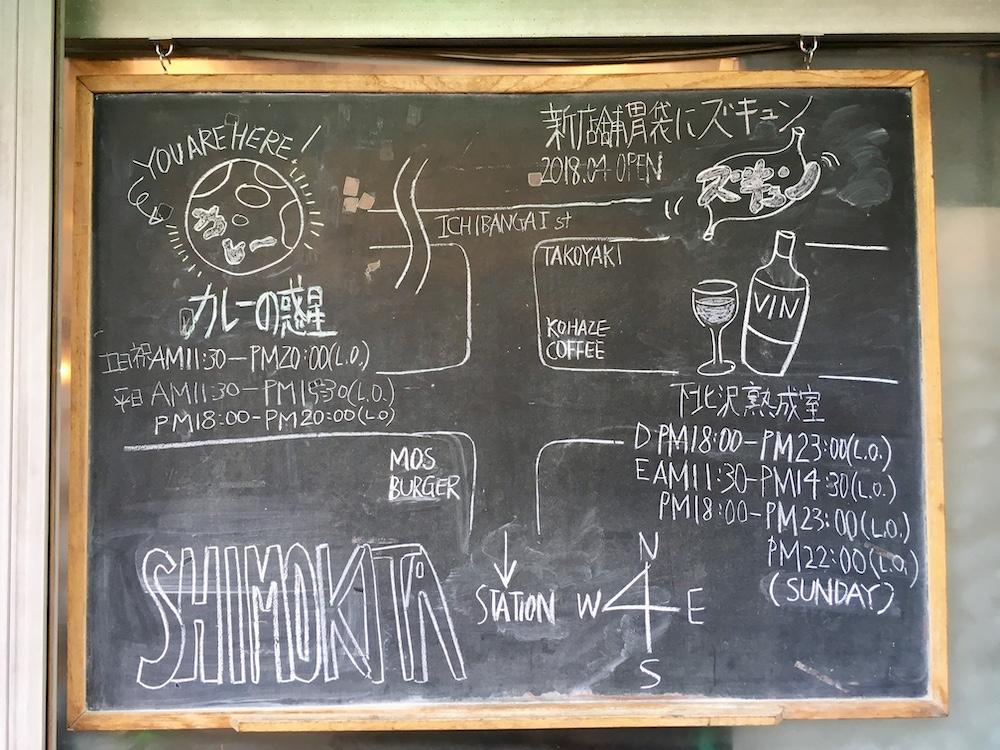 YOU ARE HERE!
カレー
カレーの惑星
土日祝 AM11:30-PM20:00(L.O.)
平日 AM11:30-PM1530(L.O.)
PM18:00-PM20:00(L.O)
新店舗胃袋にズキュン
2018.04 OPEN
ズキュン
ICHIBANGAI st
TAKOYAKI
KOHAZE
COFFEE
VIN
下北沢熟成室
D PM18:00-PM23:00(L.O.)
E AM11:30-PM14:30(L.O.)
PM18:00-PM23:00(L.O.)
PM22:00(L.O.)
(SUNDAY)
MOS
BURGER
SHIMOKITA
STATION
N
W E
S